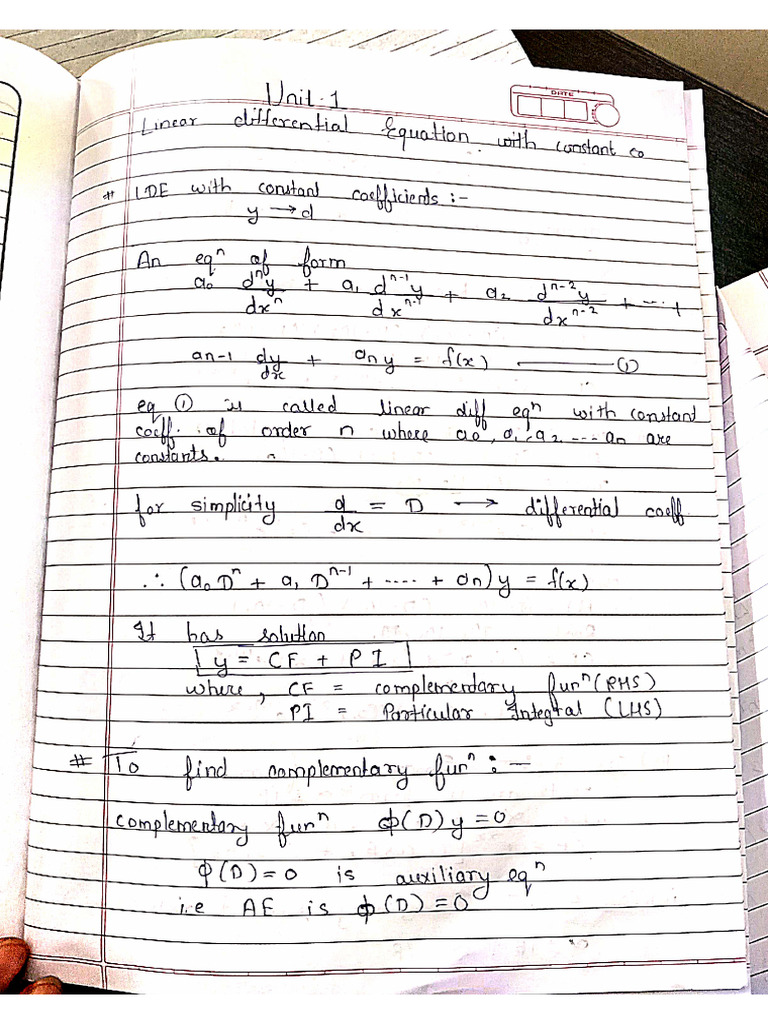 Unit-1
DATE
Linear differential Equation with constant co
# LDE with constant coefficients :-
y → d
An eqⁿ of form
a₀ dⁿy/dxⁿ + a₁ dⁿ⁻¹y/dxⁿ⁻¹ + a₂ dⁿ⁻²y/dxⁿ⁻² + ... +
an-1 dy/dx + an y = f(x) —— (1)
eq ① is called linear diff eqⁿ with constant
coeff. of order n where a₀, a₁, a₂ ---- an are
constants.
for simplicity d/dx = D → differential coeff
∴ (a₀Dⁿ + a₁Dⁿ⁻¹ + ..... + an)y = f(x)
It has solution
y = CF + PI
where, CF = complementary funⁿ (RHS)
PI = Particular Integral (LHS)
# To find complementary funⁿ :-
complementary funⁿ ϕ(D)y = 0
ϕ(D) = 0 is auxiliary eqⁿ
i.e AE is ϕ(D) = 0